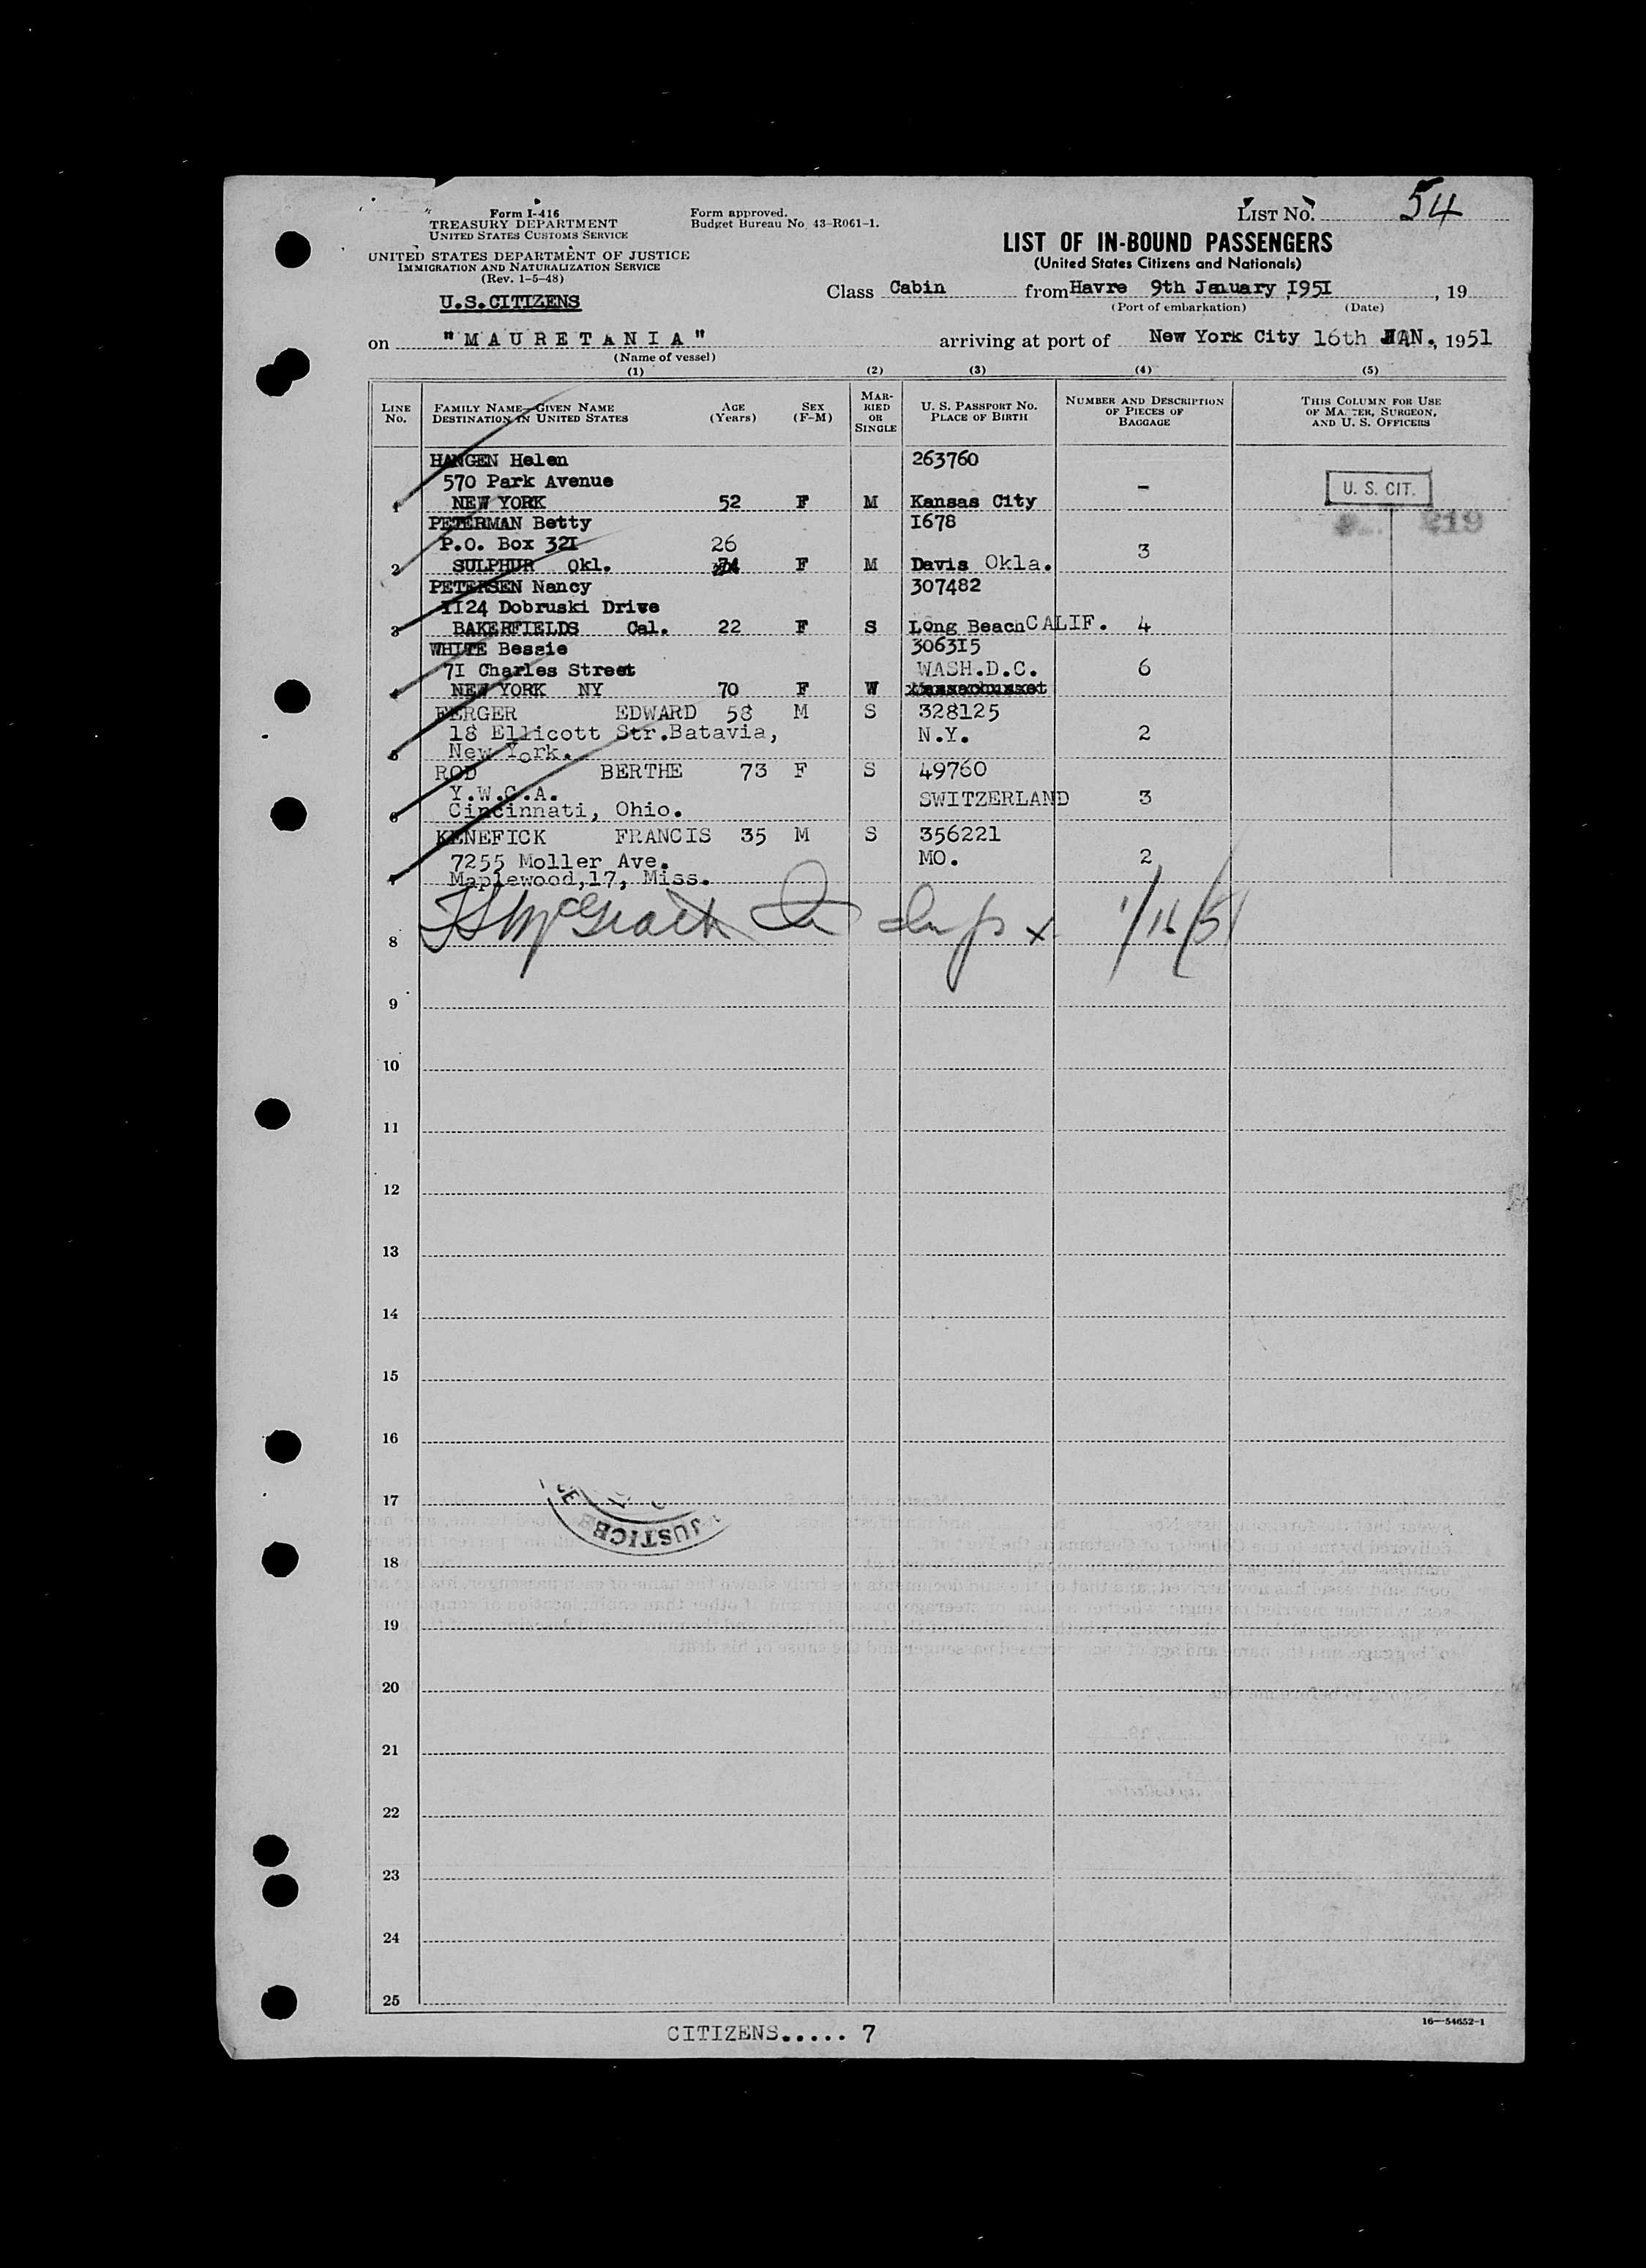 Form I-416
TREASURY DEPARTMENT
UNITED STATES CUSTOMS SERVICE
UNITED STATES DEPARTMENT OF JUSTICE
IMMIGRATION AND NATURALIZATION SERVICE
(Rev. 1-5-48)
U.S.CITIZENS
Form approved.
Budget Bureau No. 43-R061-1.
LIST No. 54
LIST OF IN-BOUND PASSENGERS
(United States Citizens and Nationals)
Class Cabin from Havre 9th January I95I , 19
(Port of embarkation) (Date)
on "MAURETANIA" arriving at port of New York City 16th JAN., 1951
(Name of vessel)
(1) (2) (3) (4) (5)
LINE No.
FAMILY NAME—GIVEN NAME
DESTINATION IN UNITED STATES
AGE (Years)
SEX (F-M)
MARRIED OR SINGLE
U. S. PASSPORT NO.
PLACE OF BIRTH
NUMBER AND DESCRIPTION OF PIECES OF BAGGAGE
THIS COLUMN FOR USE OF MASTER, SURGEON, AND U. S. OFFICERS
HANGEN Helen 263760
570 Park Avenue - U. S. CIT.
1 NEW YORK 52 F M Kansas City
PETERMAN Betty I678 219
P.O. Box 32I 26 3
2 SULPHUR Okl. F M Davis Okla.
PETERSEN Nancy 307482
II24 Dobruski Drive
3 BAKERFIELDS Cal. 22 F S Long Beach CALIF. 4
WHITE Bessie 3063I5
7I Charles Street WASH.D.C. 6
4 NEW YORK NY 70 F W
FERGER EDWARD 58 M S 328125
18 Ellicott Str.Batavia, N.Y. 2
5 New York.
ROD BERTHE 73 F S 49760
Y.W.C.A. SWITZERLAND 3
6 Cincinnati, Ohio.
KENEFICK FRANCIS 35 M S 356221
7255 Moller Ave. MO. 2
7 Maplewood,17, Miss.
1/16/51
8
9
10
11
12
13
14
15
16
17
JUSTICE
18
19
20
21
22
23
24
25
CITIZENS..... 7
16—54652-1